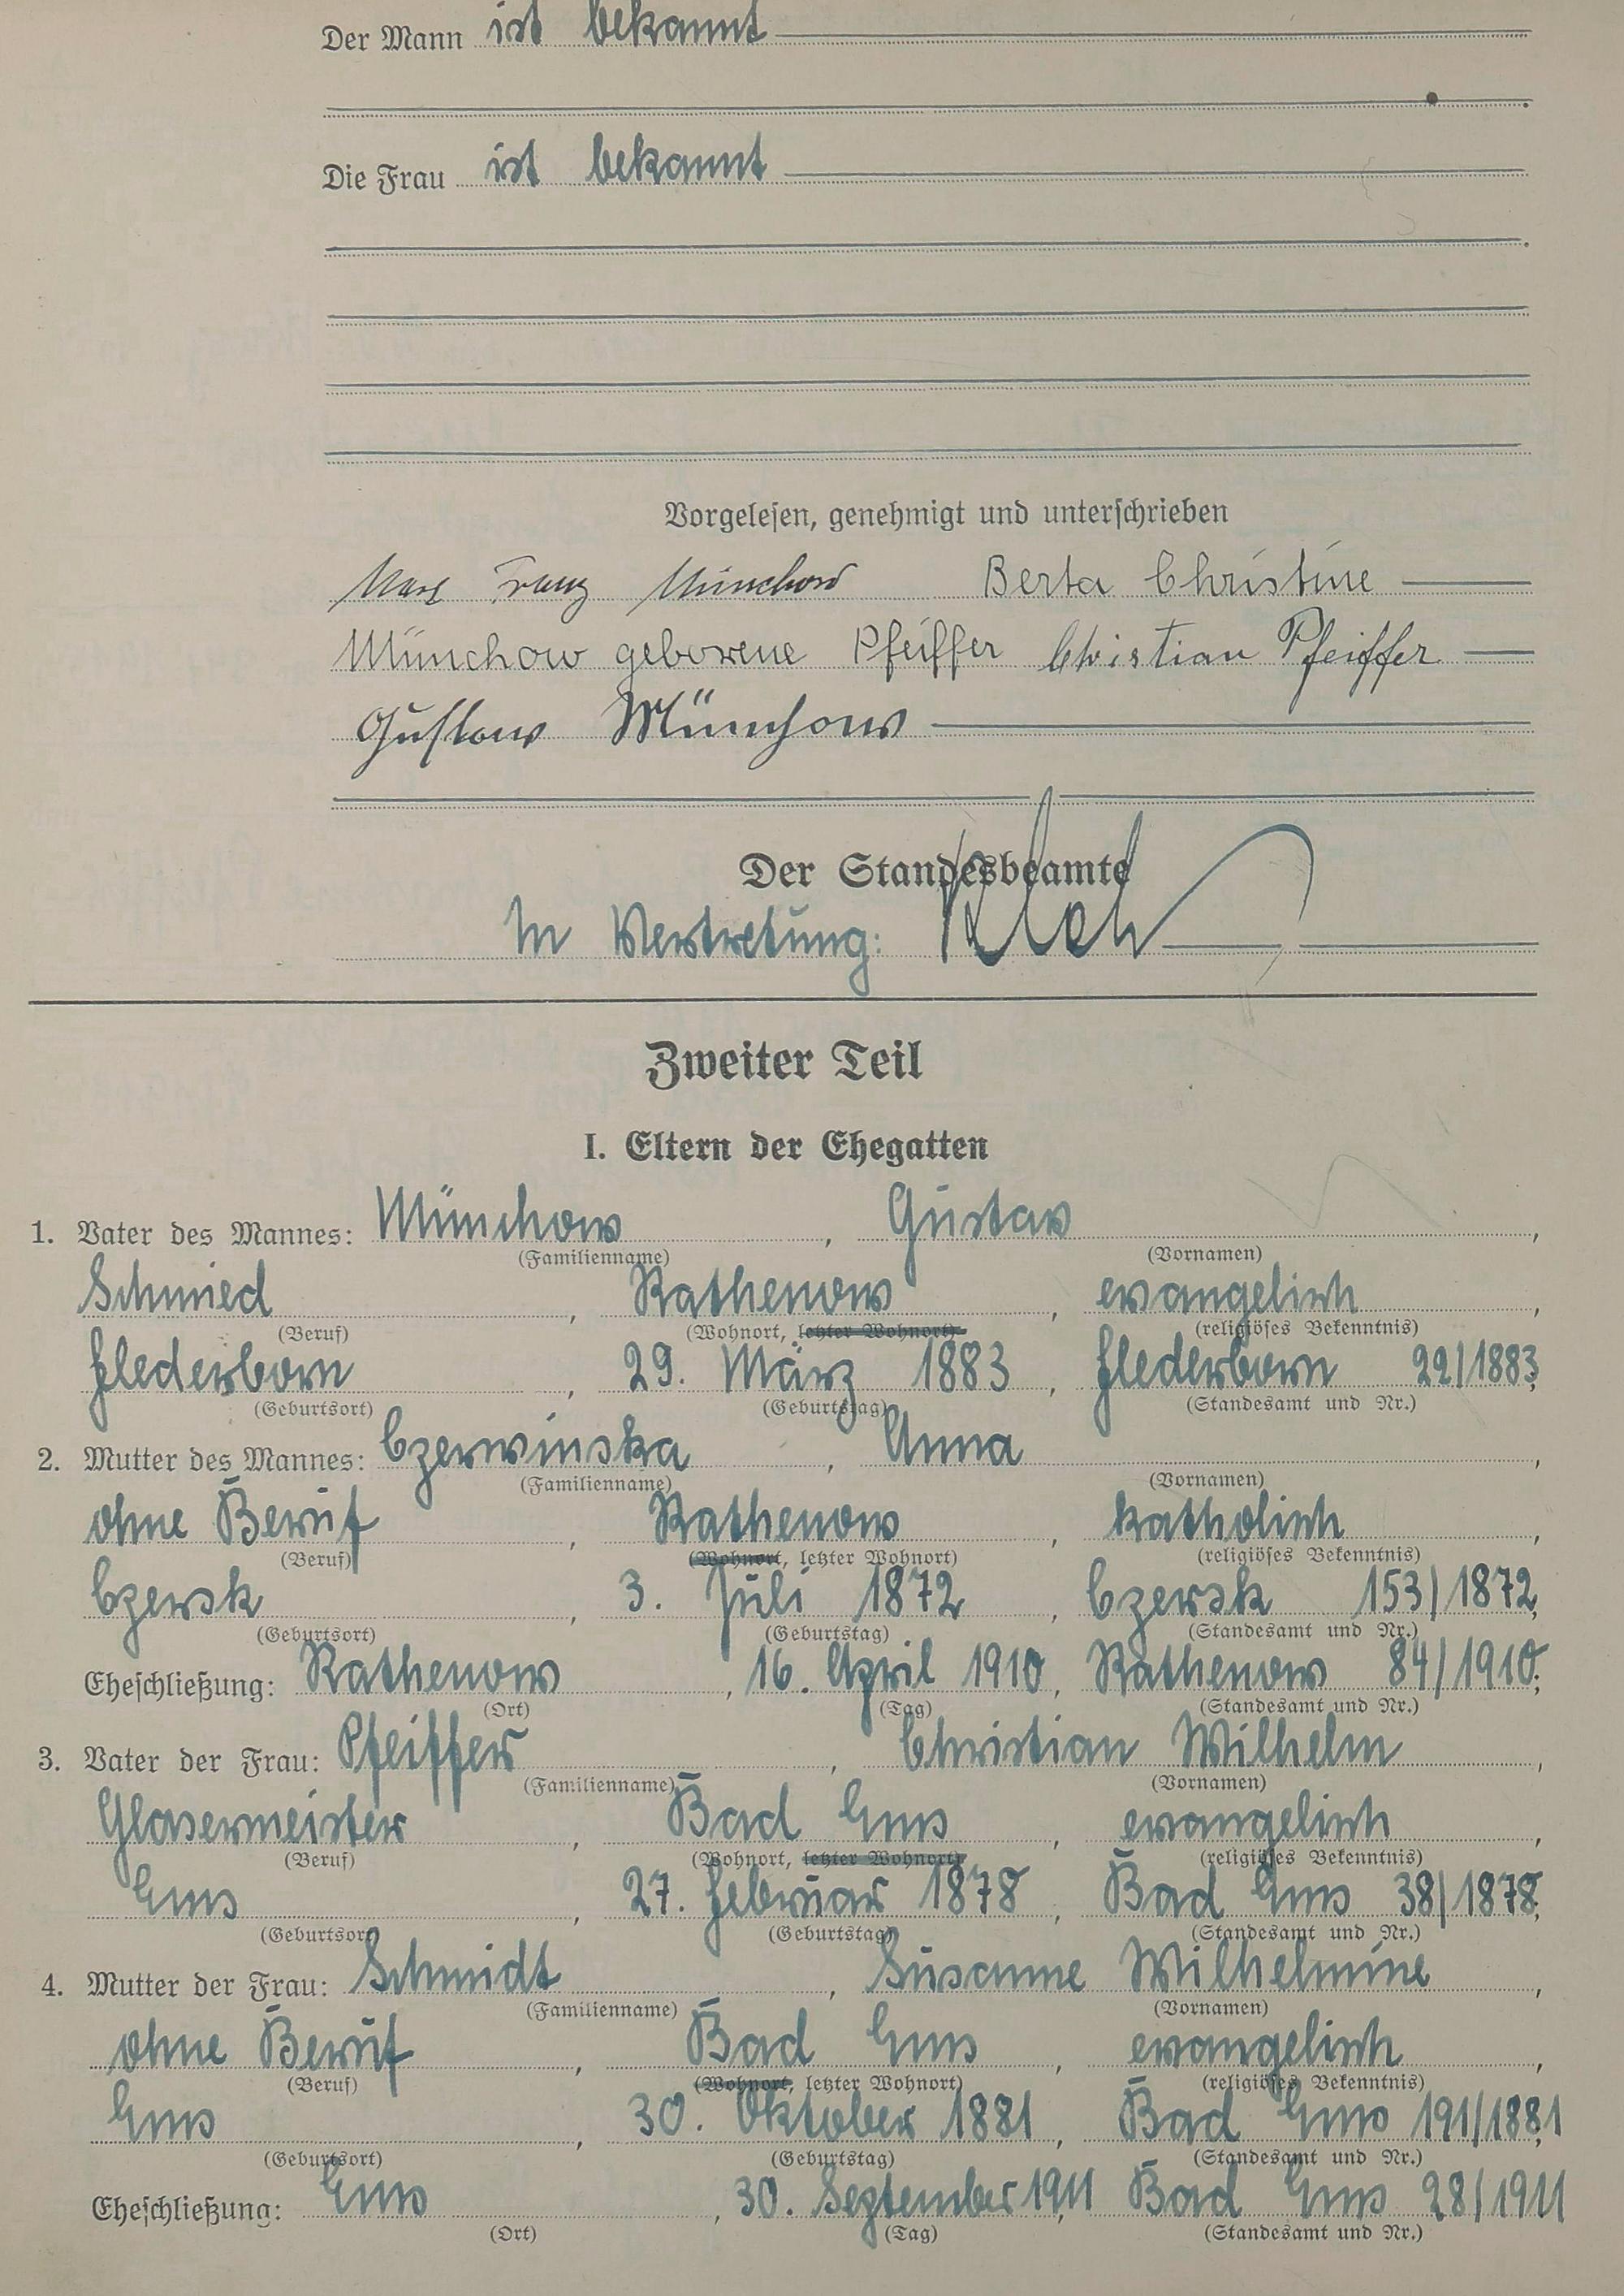 Der Mann ist bekannt
Die Frau ist bekannt
Vorgelesen, genehmigt und unterschrieben
Franz Münchow Berta Christine
Münchow geborene Pfeiffer Christian Pfeiffer
Gustav Münchow
Der Standesbeamte
In Vertretung:
Zweiter Teil
I. Eltern der Ehegatten
1. Vater des Mannes: Münchow, Gustav,
(Familienname) (Vornamen)
Schmied, Rathenow, evangelisch,
(Beruf) (Wohnort, letzter Wohnort) (religiöses Bekenntnis)
Flederborn, 29. März 1883, Flederborn 22/1883,
(Geburtsort) (Geburtstag) (Standesamt und Nr.)
2. Mutter des Mannes: Czerwinska, Anna,
(Familienname) (Vornamen)
ohne Beruf, Rathenow, katholisch,
(Beruf) (Wohnort, letzter Wohnort) (religiöses Bekenntnis)
Czersk, 3. Juli 1872, Czersk 153/1872,
(Geburtsort) (Geburtstag) (Standesamt und Nr.)
Eheschließung: Rathenow, 16. April 1910, Rathenow 84/1910;
(Ort) (Tag) (Standesamt und Nr.)
3. Vater der Frau: Pfeiffer, Christian Wilhelm,
(Familienname) (Vornamen)
Glasermeister, Bad Ems, evangelisch,
(Beruf) (Wohnort, letzter Wohnort) (religiöses Bekenntnis)
Ems, 27. Februar 1878, Bad Ems 38/1878,
(Geburtsort) (Geburtstag) (Standesamt und Nr.)
4. Mutter der Frau: Schmidt, Susanne Wilhelmine,
(Familienname) (Vornamen)
ohne Beruf, Bad Ems, evangelisch,
(Beruf) (Wohnort, letzter Wohnort) (religiöses Bekenntnis)
Ems, 30. Oktober 1881, Bad Ems 191/1881,
(Geburtsort) (Geburtstag) (Standesamt und Nr.)
Eheschließung: Ems, 30. September 1911, Bad Ems 28/1911
(Ort) (Tag) (Standesamt und Nr.)